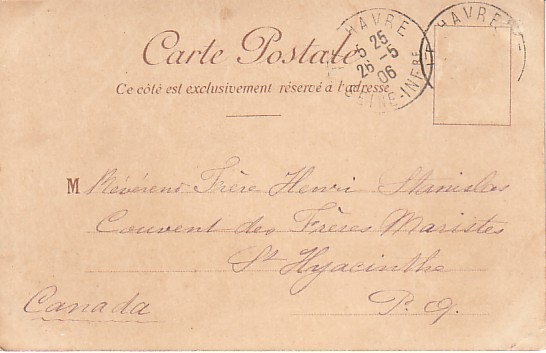 HAVRE
5 25
26 - 5
06
SEINE-INFRE
HAVRE
Carte Postale
Ce côté est exclusivement réservé à l'adresse
M Révérend Frère Henri Stanislas
Couvent des Frères Maristes
St Hyacinthe
Canada P. Q.